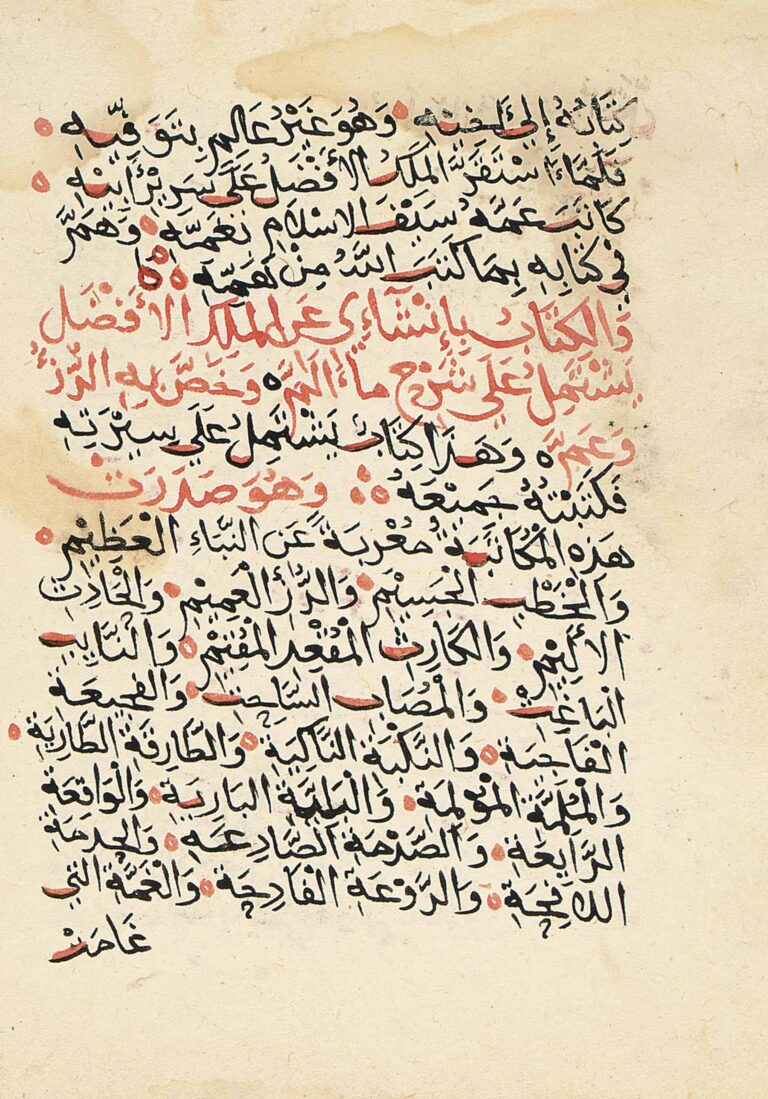 كتابه إلى أخيه وهو غير عالم بتوفيه
فلما استقر الملك الأفضل على سرير أبيه
كاتب عمه سيف الاسلام بغمه وهمه
في كتابه بما كتب الله من همه
والكتاب بإنشاءي عن الملك الأفضل
يشتمل على شرح ما ألم وخص به الرزء
وعم وهذا كتاب يشتمل على سيرته
فكتبته جميعه وهو صدرت
هذه المكاتبة معربة عن النباء العظيم
والخطب الجسيم والرزء العميم والحادث
الأليم والكارث المقعد المقيم والنايب
الباغت والمصاب الساحت والفجيعة
الفاجية والنكبة الناكبة والطارقة الطارية
والملمة المؤلمة والبلية البارية والواقعة
الرايعة والصدمة الصادعة والجدحة
اللافحة والروعة الفادحة والغمة التي
غامت